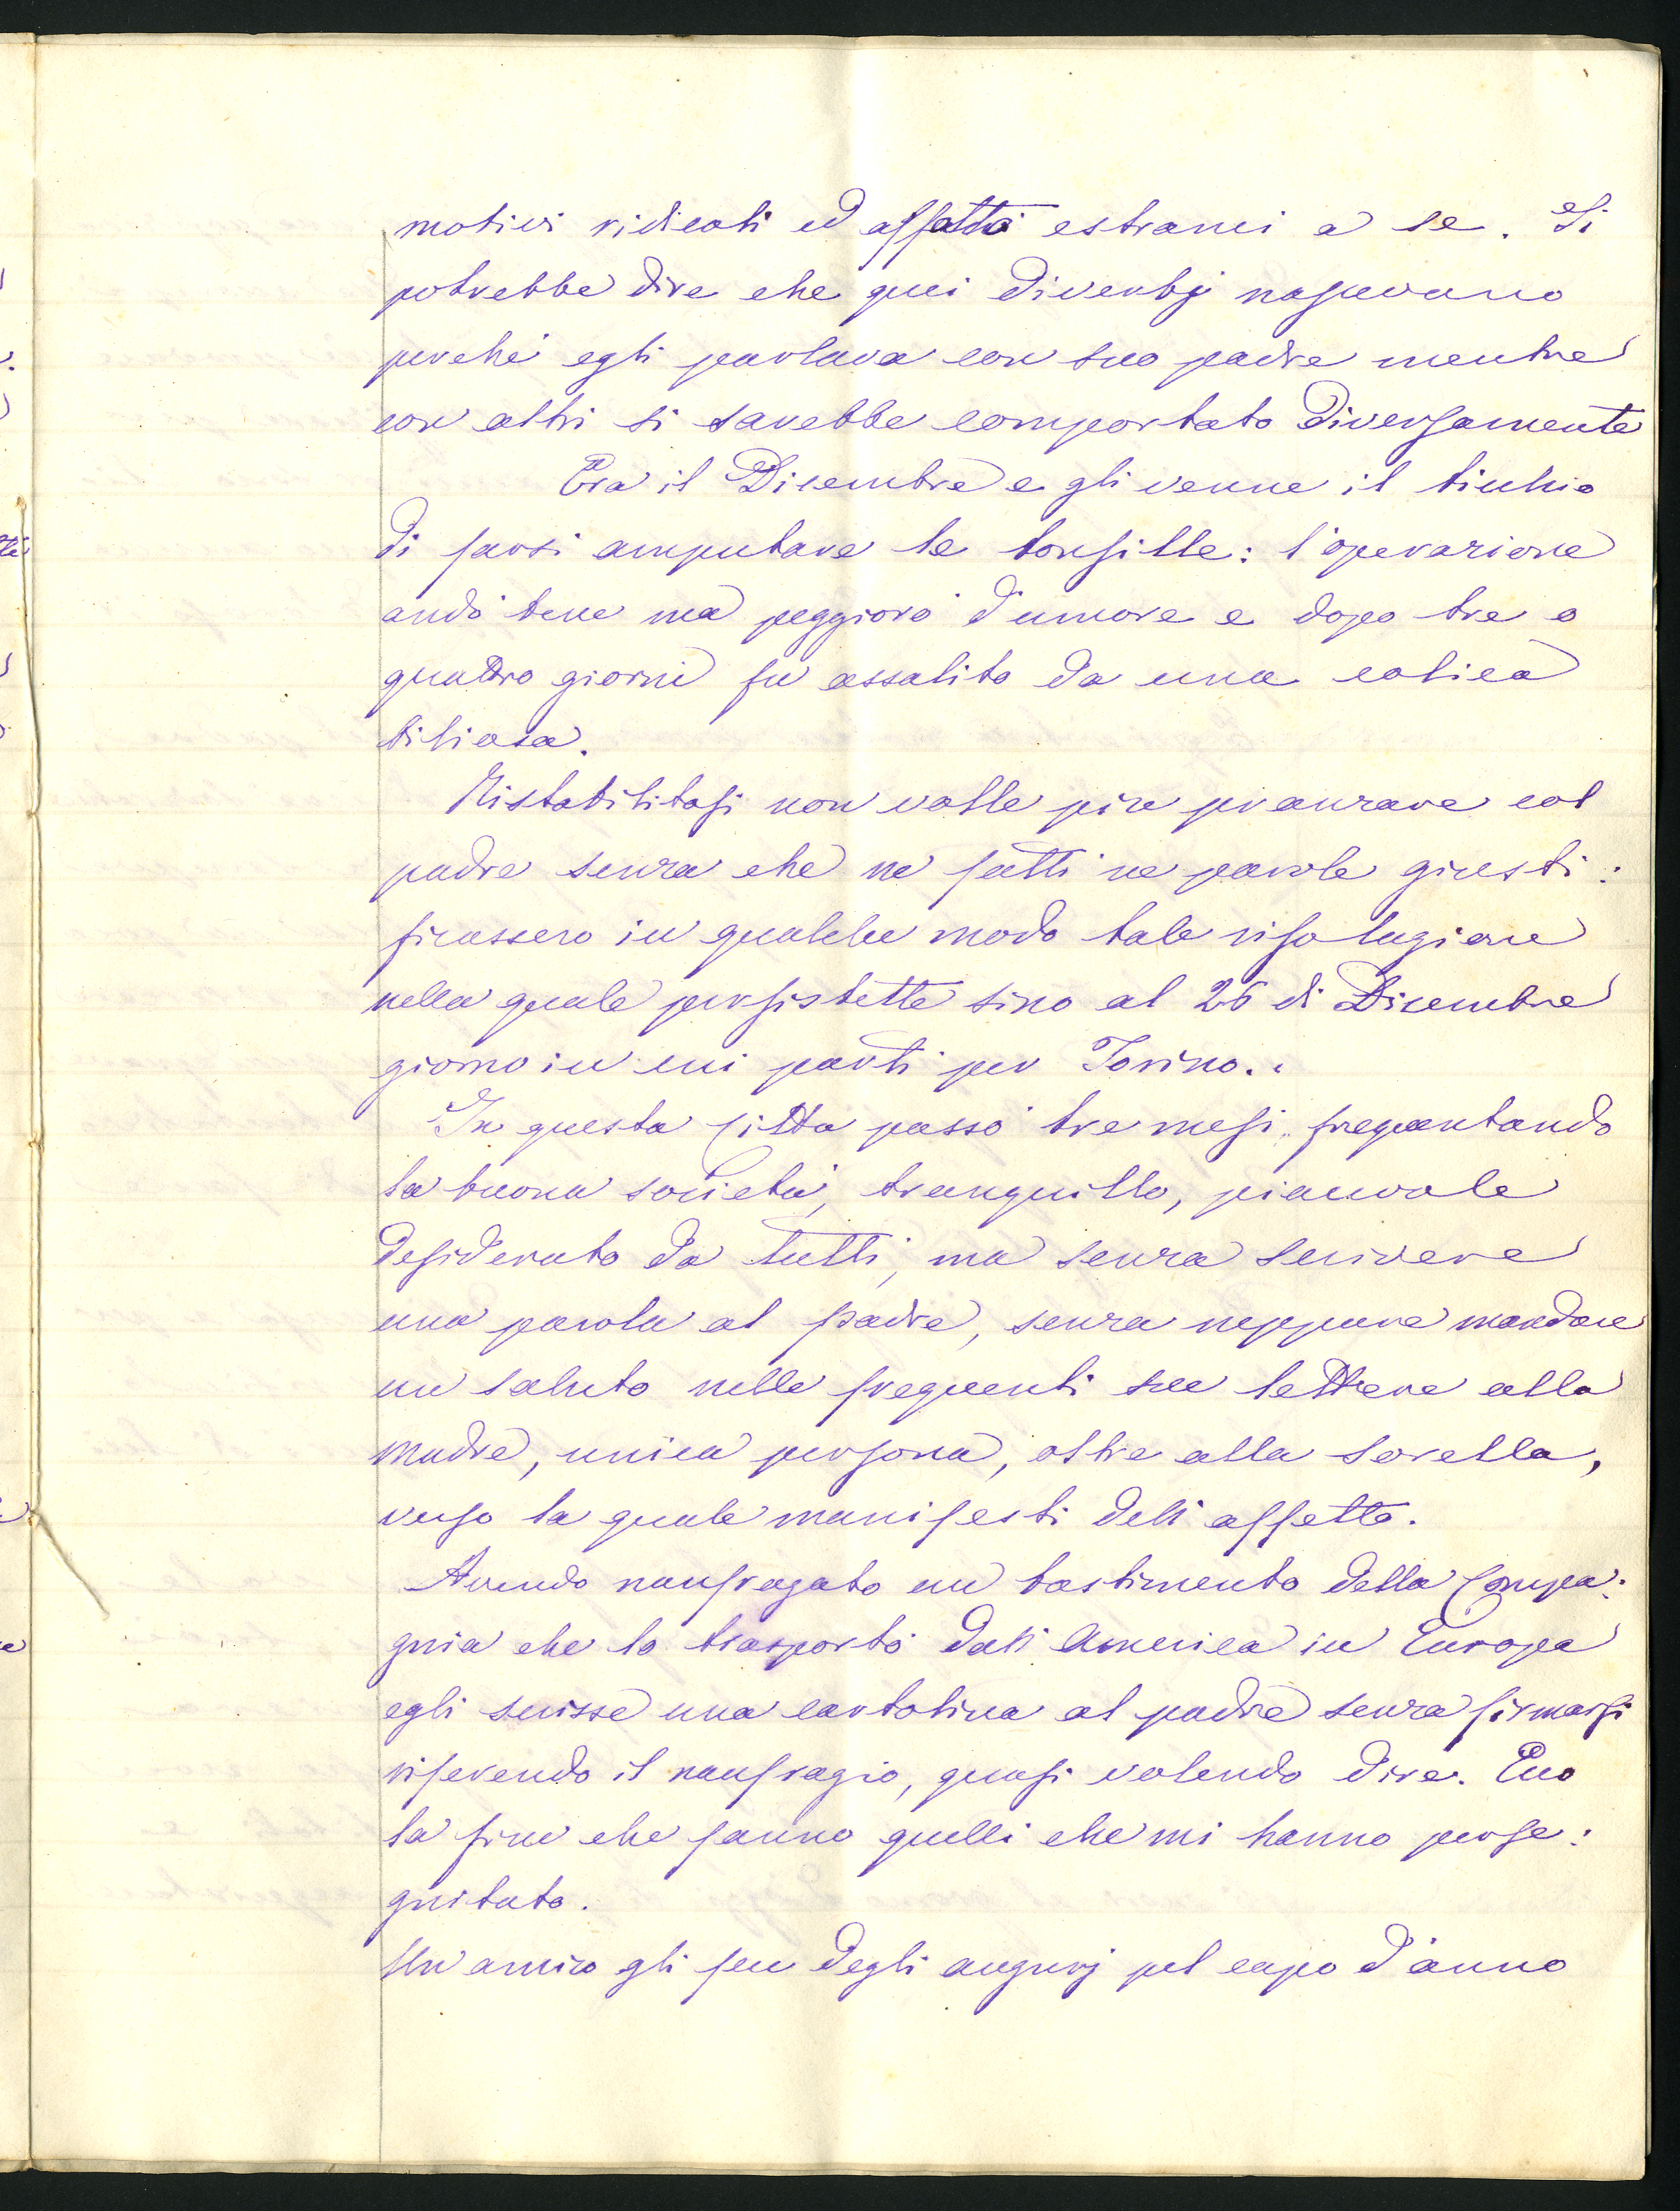 motivi ridicoli ed affatto estranei a se. Si
potrebbe dire che quei diverbj nascevano
perché egli parlava con suo padre mentre
con altri si sarebbe comportato diversamente
Era il Dicembre e gli venne il ticchio
di farsi amputare le tonsille: l'operazione
andò bene ma peggiorò d'umore e dopo tre o
quattro giorni fu assalito da una colica
biliosa.
Ristabilitosi non volle più pranzare col
padre senza che ne fatti ne parole giusti:
ficassero in qualche modo tale risoluzione
nella quale persistette sino al 26 di Dicembre
giorno in cui partì per Torino..
In questa città passò tre mesi, frequentando
la buona società, tranquillo, piacevole
desiderato da tutti, ma senza scrivere
una parola al padre, senza neppure mandare
un saluto nelle frequenti sue lettere alla
madre, unica persona, oltre alla sorella,
verso la quale manifesti dell'affetto.
Avendo naufragato un bastimento della Compa:
gnia che lo trasportò dall'America in Europa
egli scrisse una cartolina al padre senza firmarsi
riferendo il naufragio, quasi volendo dire. Ecco
la fine che fanno quelli che mi hanno perse:
guitato.
Un amico gli fece degli augurj pel capo d'anno